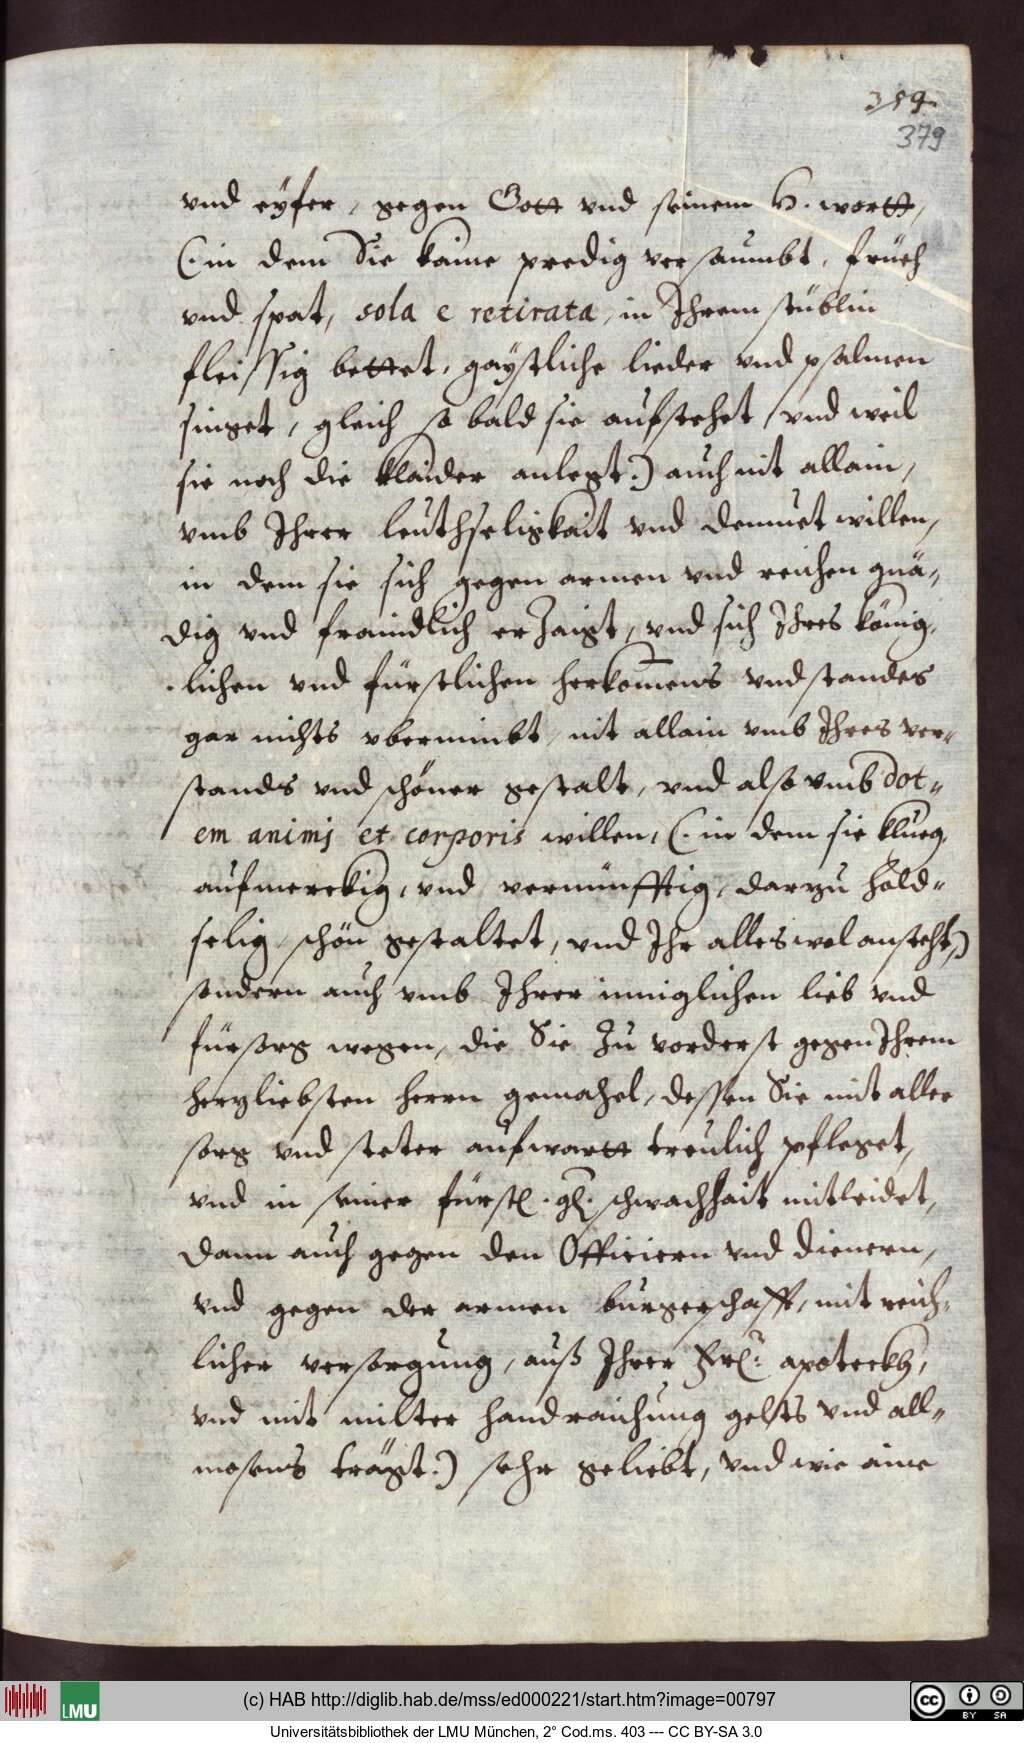 359.
379
vnd eyfer, gegen Gott vnd seinem H. wortt,
(. in dem Sie kaine predig versaumbt, früeh
vnd spat, sola e retirata, in Ihrem stüblin
fleissig bettet, gaystliche lieder vnd psalmen
singet, gleich so bald sie aufstehet, vnd weil
sie noch die klaider anlegt.) auch nit allain,
vmb Ihrer leuthseligkait vnd demuet willen,
in dem sie sich gegen armen vnd reichen gnä-
dig vnd fraindlich erZaigt, vnd sich Ihres könig-
lichen vnd fürstlichen herkom̄ens vnd standes
gar nichts vbernimbt, nit allain vmb Ihres ver-
stands vnd schöner gestalt, vnd also vmb dot-
em animj et corporis willen, (. in dem sie klueg,
aufmerckig, vnd vernünfftig, darzu hold-
selig, schön gestaltet, vnd Ihr alles wol ansteht,)
sondern auch vmb Ihrer inniglichen lieb vnd
fürsorg wegen, die Sie Zu vorderst gegen Ihrem
herzliebsten herrn gemahel, dessen Sie mit aller
sorg vnd steter aufwartt treulich pfleget,
vnd in seiner fürstl. gl. schwachhait mitleidet,
dann auch gegen den Officiern vnd dienern,
vnd gegen der armen burgerschafft, mit reich-
licher versorgung, auß Ihrer apoteckh,
vnd mit milter handraichung gelts vnd all-
mosens trägt.) sehr geliebt, vnd wie aine
(c) HAB http://diglib.hab.de/mss/ed000221/start.htm?image=00797
LMU
cc BY SA
Universitätsbibliothek der LMU München, 2° Cod.ms. 403 --- CC BY-SA 3.0